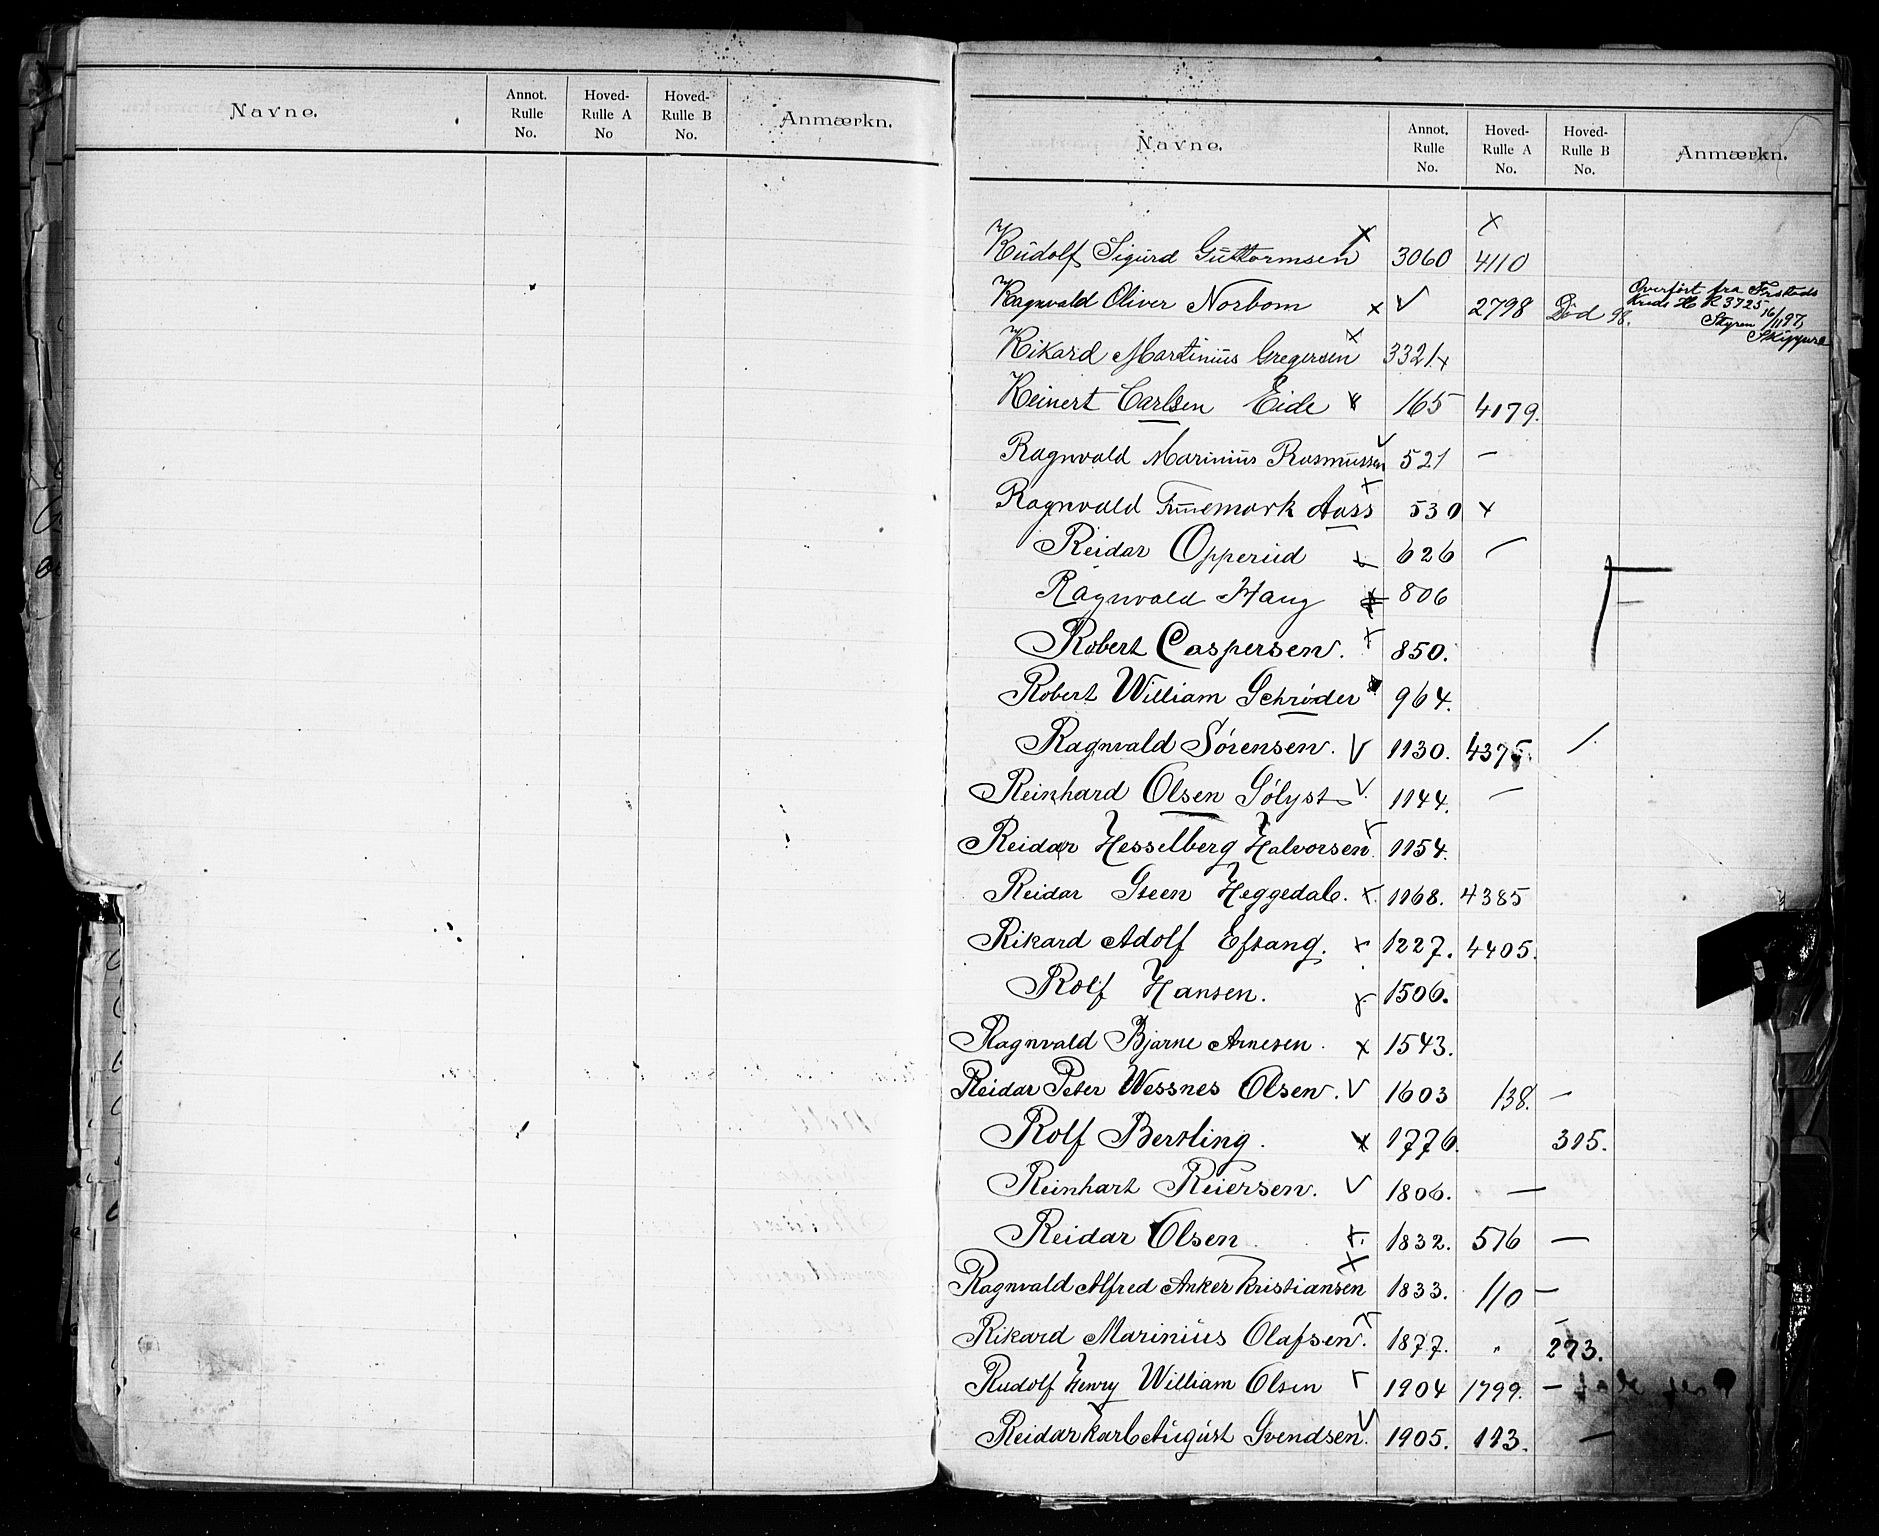 Navne. Annot. Rulle No. Hoved-Rulle A No Hoved-Rulle B No. Anmærkn.
Navne. Annot. Rulle No. Hoved-Rulle A No. Hoved-Rulle B No. Anmærkn.
x
Rudolf Sigurd Guttormsen x 3060 4110
Ragnvald Oliver Norbom x √ 2798 Død 98. Overført fra
Kreds H R 3725
16/11 97
Rikard Martinius Gregersen x 3321 x
Reinert Carlsen Eide x 165 4179.
Ragnvald Marinius Rasmussen √ 521 —
Ragnvald Aass x 530 x
Reidar Opperud x 626 —
Ragnvald Haug x 806
F
Robert Caspersen. x 850.
Robert William Schrøder 964.
Ragnvald Sørensen. √ 1130. 4375. /.
Reinhard Olsen Sølyst √. 1144. —
Reidar Hesselberg Halvorsen. 1154.
Reidar Steen Heggedal. x. 1168. 4385
Rikard Adolf Eftang. x 1227. 4405.
Rolf Hansen. x. 1506.
Ragnvald Bjarne Arnesen. x 1543.
Reidar Peter Wessnes Olsen. √ 1603 138. —
Rolf Bertling. x 1776. 315.
Reinhart Reiersen. √ 1806. —
Reidar Olsen. x. 1832. 516 —
Ragnvald Alfred Anker Kristiansen x 1833. 110 —
Rikard Marinius Olafsen. x 1877. 273.
Rudolf Henry William Olsen x 1904 1799. —
Reidar Karl August Svendsen. √ 1905. 113. —